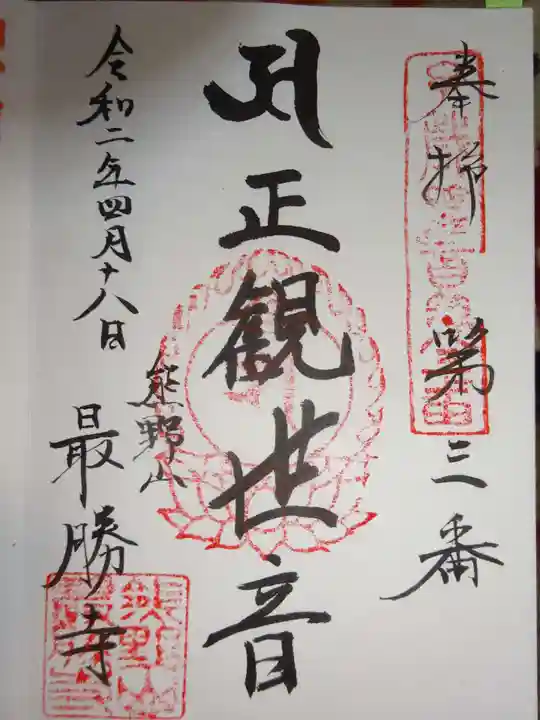 奉拝 第三番
正観世音
熊野山
最勝寺
令和二年四月十八日